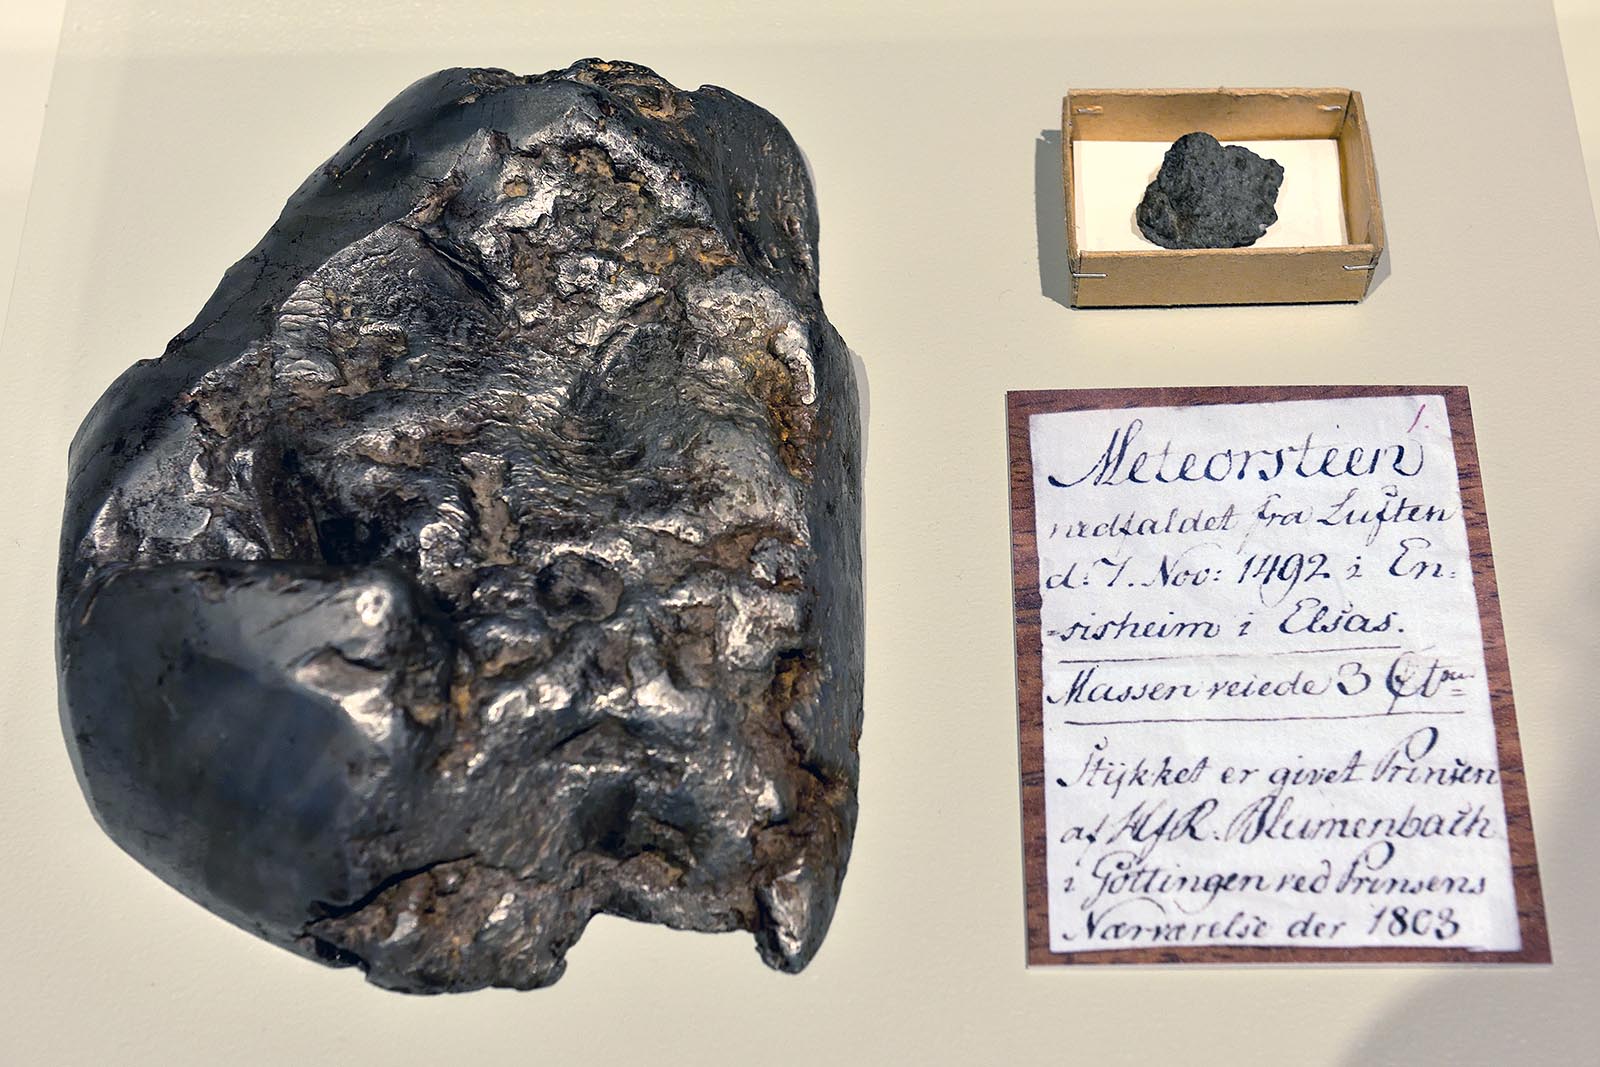 1.
Meteorsteen
nedfaldet fra Luften
d: 7. Nov: 1492 i En:
=sisheim i Elsas.
Massen veiede 3 Ctnr
Stÿkket er givet Prinsen
af HfR. Blumenbach
i Göttingen ved Prinsens
Nærværelse der 1803